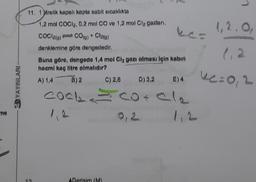 11. 1 litrelik kapalı kapta sabit sıcaklıkta
1,2 mol COCl₂, 0,2 mol CO ve 1,2 mol Cl₂ gazları,
COCl₂(g) ⇌ CO(g) + Cl₂(g)
denklemine göre dengededir.
Buna göre, dengede 1,4 mol Cl₂ gazı olması için kabın
hacmi kaç litre olmalıdır?
A) 1,4 B) 2 C) 2,8 D) 3,2 E) 4
COCl₂ ⇌ CO + Cl₂
1,2 0,2 1,2
kc = 1,2.0,
1,2
kc=0,2
YAYINLARI